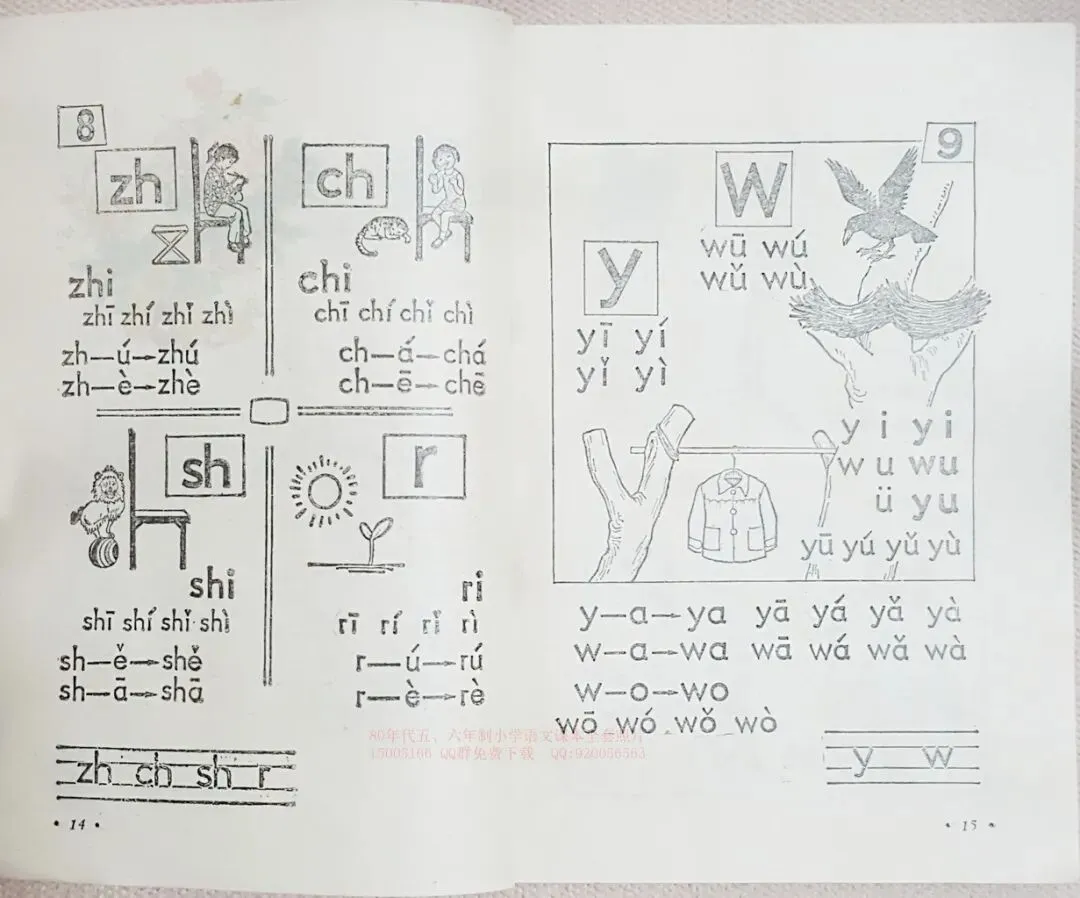 8
zh
zhi
zhī zhí zhǐ zhì
zh—ú→zhú
zh—è→zhè
ch
chi
chī chí chǐ chì
ch—á→chá
ch—ē→chē
sh
shi
shī shí shǐ shì
sh—ě→shě
sh—ā→shā
r
ri
rī rí rǐ rì
r—ú→rú
r—è→rè
zh ch sh r
• 14 •
9
w
wū wú
wǔ wù
y
yī yí
yǐ yì
y i yi
w u wu
ü yu
yū yú yǔ yù
y—a→ya yā yá yǎ yà
w—a→wa wā wá wǎ wà
w—o→wo
wō wó wǒ wò
y w
• 15 •
80年代五、六年制小学语文课本全套照片
15005166 QQ群免费下载 QQ:920056563